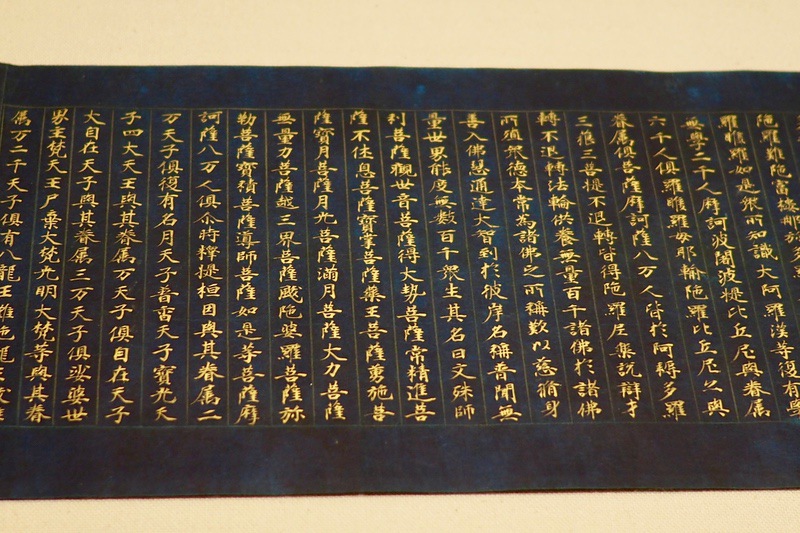 陁羅難陁富樓那弥多羅
羅睺羅如是衆所知識大阿羅漢等復有學
無學二千人摩訶波闍波提比丘尼與眷属
六千人俱羅睺羅母耶輸陁羅比丘尼亦與
眷属俱菩薩摩訶薩八万人皆於阿耨多羅
三藐三菩提不退轉皆得陁羅尼樂說辯才
轉不退轉法輪供養無量百千諸佛於諸佛
所殖衆德本常為諸佛之所稱歎以慈脩身
善入佛慧通達大智到於彼岸名稱普聞無
量世界能度無數百千衆生其名曰文殊師
利菩薩觀世音菩薩得大勢菩薩常精進菩
薩不休息菩薩寶掌菩薩藥王菩薩勇施菩
薩寶月菩薩月光菩薩滿月菩薩大力菩薩
無量力菩薩越三界菩薩颰陁婆羅菩薩弥
勒菩薩寶積菩薩導師菩薩如是等菩薩摩
訶薩八万人俱尒時釋提桓因與其眷属二
万天子俱復有名月天子普香天子寶光天
子四大天王與其眷属万天子俱自在天子
大自在天子與其眷属三万天子俱娑婆世
界主梵天王尸棄大梵光明大梵等與其眷
属万二千天子俱有八龍王難陁龍王